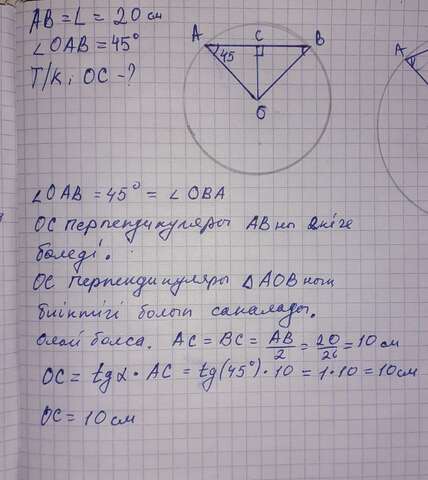 AB = L = 20 см
∠OAB = 45°
Т/к: OC - ?
A C B
45
O
A
∠OAB = 45° = ∠OBA
OC перпендикуляры AB ны 2ніге
бөледі.
OC перпендикуляры △AOB ның
биіктігі болып саналады.
Олай болса. AC = BC = AB/2 = 20/2 = 10 см
OC = tgα · AC = tg(45°) · 10 = 1·10 = 10см
OC = 10 см